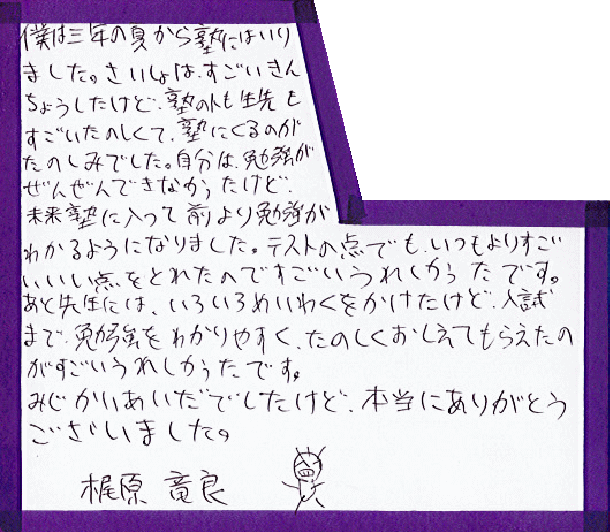 僕は三年の夏から塾にはいり
ました。さいしょは、すごいきん
ちょうしたけど、塾の人も生先も
すごいたのしくて、塾にくるのが
たのしみでした。自分は、勉強が
ぜんぜんできなかったけど、
未来塾に入って前より勉強が
わかるようになりました。テストの点でも、いつもよりすご
いいい点をとれたのですごいうれしかったです。
あと先生には、いろいろめいわくをかけたけど、入試
まで、勉強をわかりやすく、たのしくおしえてもらえたの
がすごいうれしかったです。
みじかいあいだでしたけど、本当にありがとう
ございました。
梶原 竜良